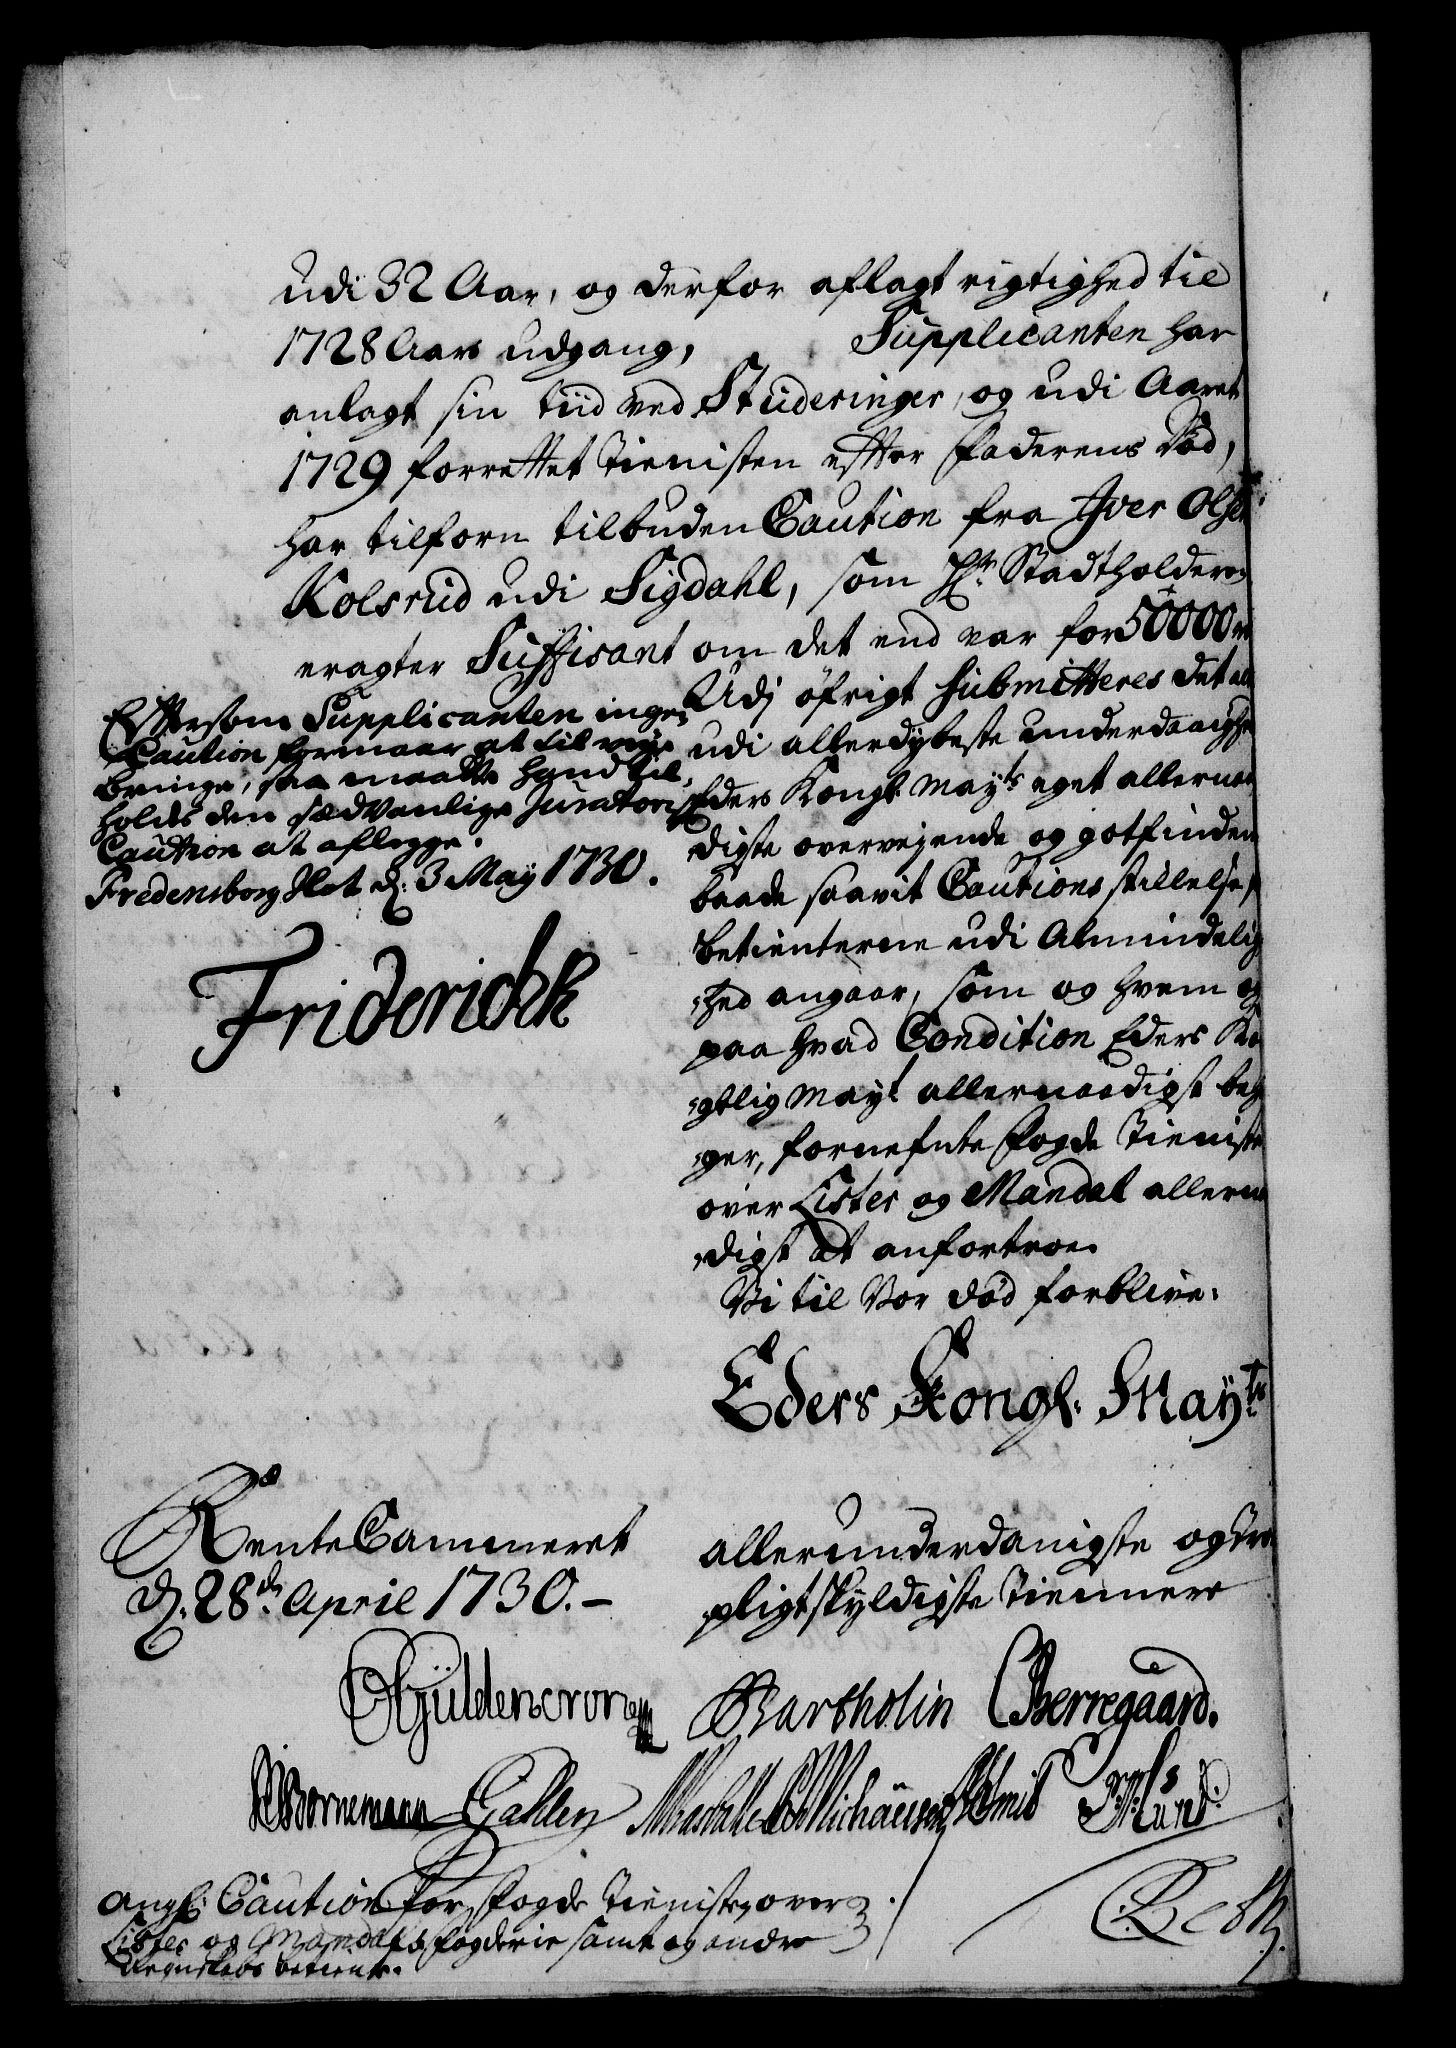 udi 32 Aar, og derfor aflagt rigtighed til
1728 Aars udgang, Supplicanten har
anlagt sin tiid ved Studeringer, og udi Aaret
1729 forrettet Tienisten efter Faderens Död,
har tilforn tilbuden Caution fra Iver Olsen
Kolsrud udi Sigdahl, som Hr. Stadtholderen
eragter Suffisant om det end var for 50000 rd
Udj öfrigt submitteres det alt
udi allerdybeste underdaanighed
Eders Kongl. Mayts eget allernaa
digste overvejende og gotfindende
baade saavit Cautions stillelse for
betienterne udi Almindelig
=hed angaar, som og hvem og
paa hvad Condition Eders Ko
=gelig Mayt allernaadigst beha
=ger, fornefnte Fogde Tieniste
over Lister og Mandal allernaa
=digst at anfortroe.
Vi til Vor död forblive.
Eftersom Supplicanten ingen
Caution formaar at til veye
bringe, saa maatte hand til
holdes den sædvanlige Juratoriske
Caution at aflegge.
Fredensborg Slot d: 3 May 1730.
Friderich R
Eders Kongl. Mayts
RenteCammeret
d. 28de April 1730.
allerunderdanigste og tro
pligtskyldigste Tiennere
Güldencrone
Bartholin Berregaard.
Bornemann Gahlen Michäelsen Smit
angl: Caution for Fogde Tienisten over
Lister og Mandals fogderie samt og andre
Regnskabs betiente.